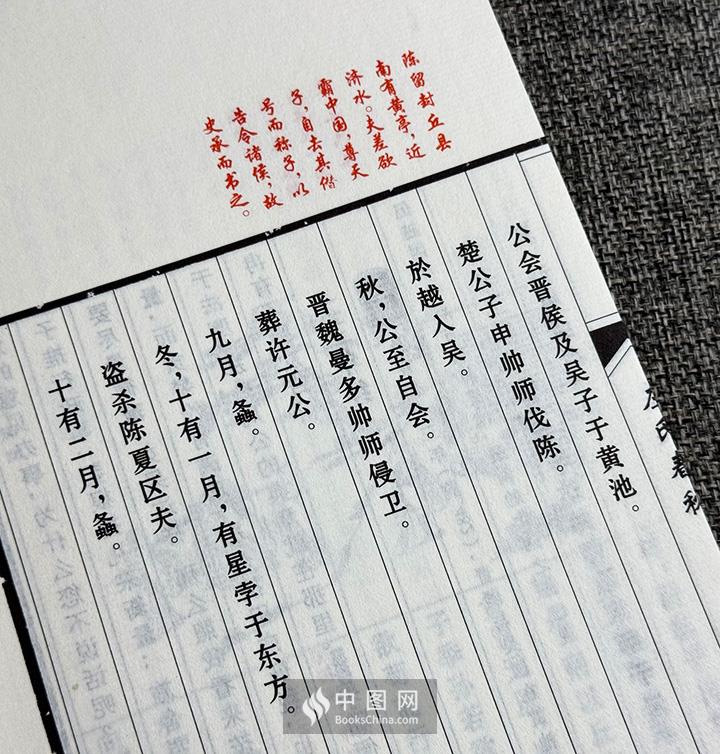 陈留封丘县
南有黄亭，近
济水。夫差欲
霸中国，尊天
子，自去其僭
号而称子，以
告令诸侯，故
史承而书之。
公会晋侯及吴子于黄池。
楚公子申帅师伐陈。
於越入吴。
秋，公至自会。
晋魏曼多帅师侵卫。
葬许元公。
九月，螽。
冬，十有一月，有星孛于东方。
盗杀陈夏区夫。
十有二月，螽。
左氏春秋
中图网
BooksChina.com